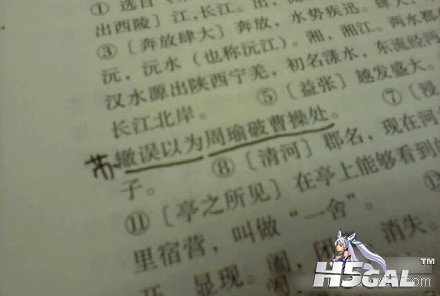 ① 选自
出西陵] 江,长江。出,
③ [奔放肆大] 奔放,水势疾迅。肆大,
沅,沅水(也称沅江)。湘,湘江。两水都
汉水源出陕西宁羌,初名漾水,东流经
长江北岸。 ⑤ [益张] 越发盛大。 ⑦ [浸
苏辙误以为周瑜破曹操处。
⑧ [清河] 郡名,现在河
子。
⑪ [亭之所见] 在亭上能够看到的
里宿营,叫做“一舍”。
开,显现。阖,闭 消失。
H5GAL.com